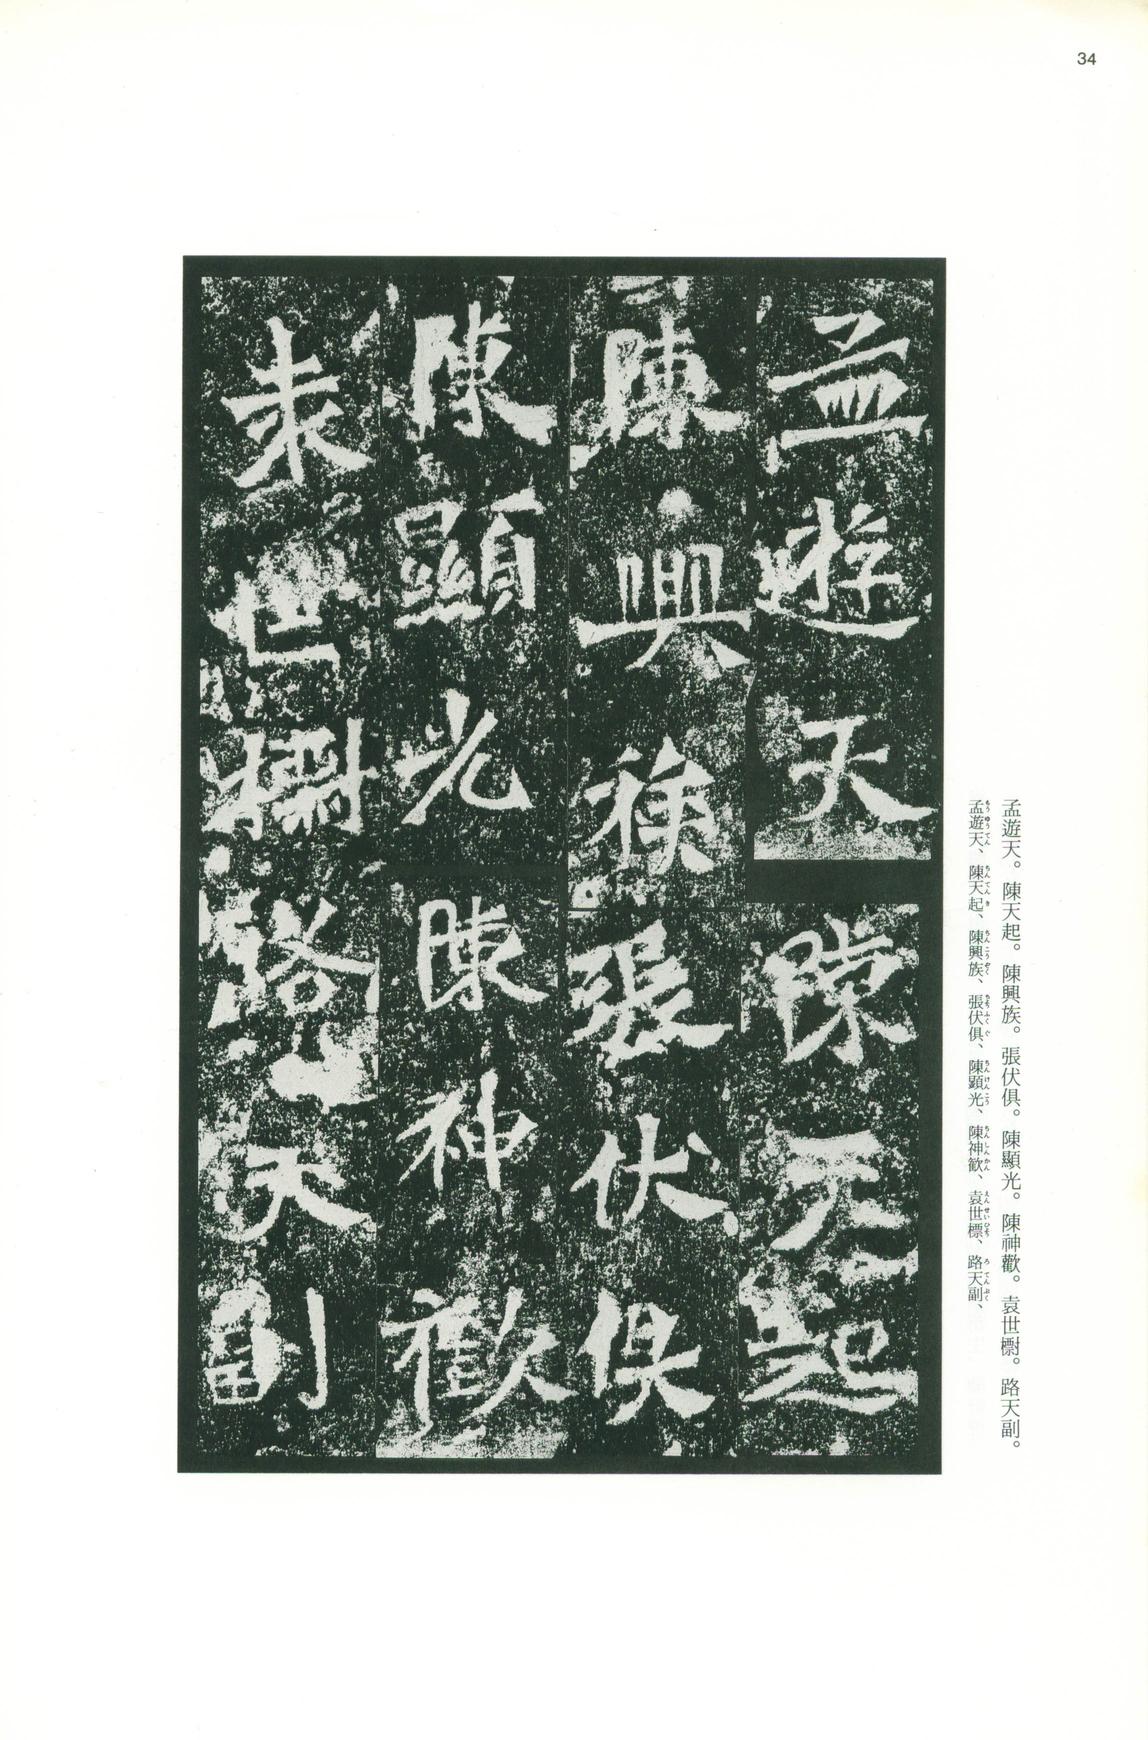 34
孟遊天。陳天起。陳興族。張伏俱。陳顯光。陳神歡。袁世櫉。路天副。
孟遊天、陳天起、陳興族、張伏俱、陳顕光、陳神歓、袁世標、路天副、
孟遊天陳天起
陳興族張伏俱
陳顯光陳神歡
袁世櫉路天副